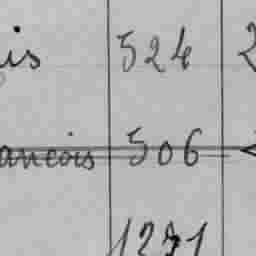 is 524
ancois 506
1291